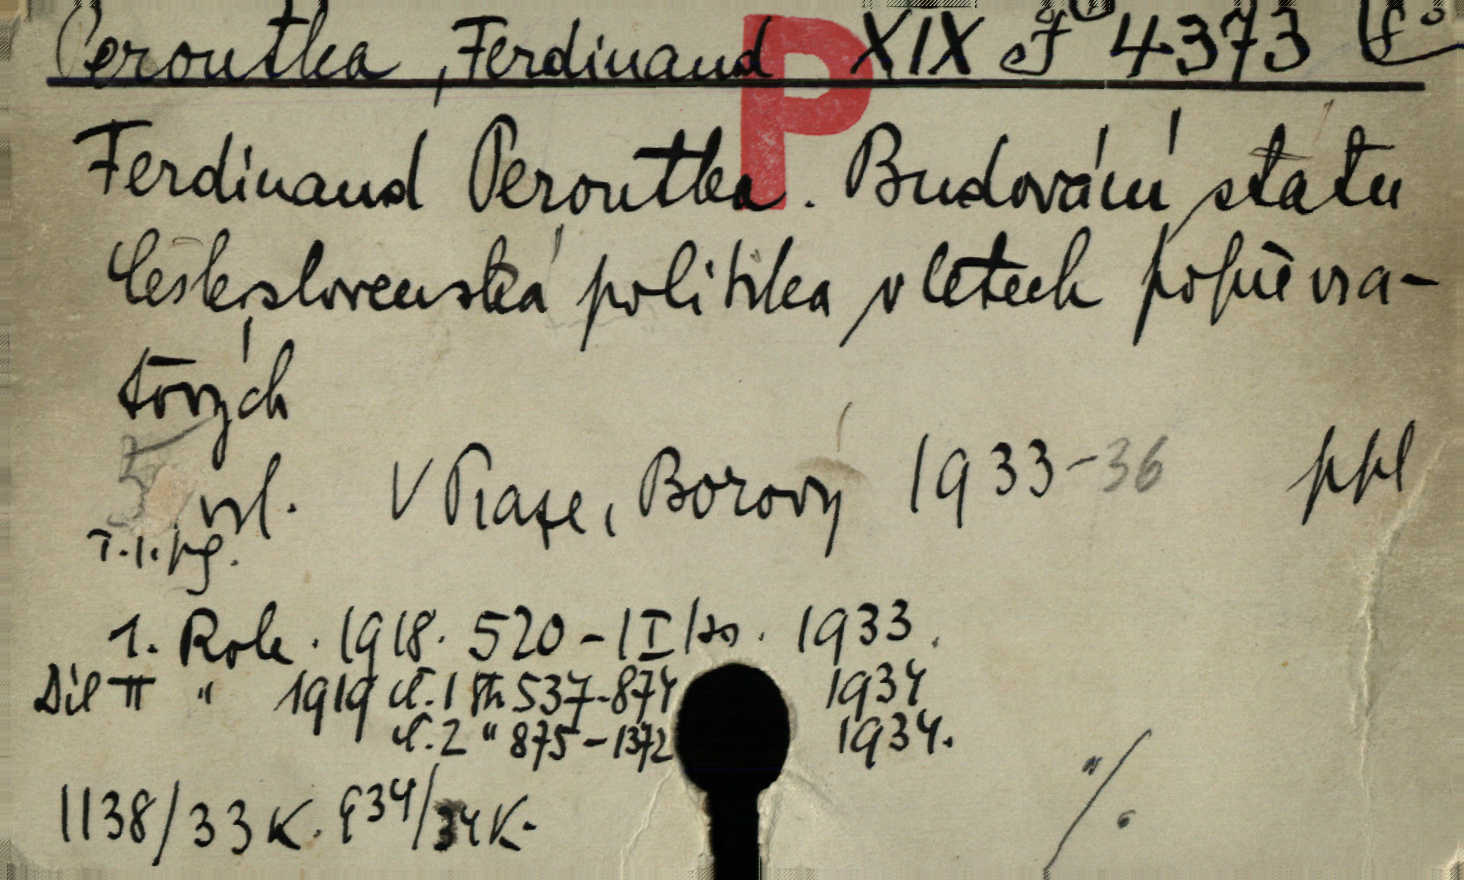 Peroutka, Ferdinand P XIX F 4373
Ferdinand Peroutka. Budování státu
Československá politika v letech popřevra-
tových
5 vol. V Praze, Borový 1933-36 ppl
T.1.pg.
1. Rok. 1918. 520-1 I 1933.
Díl II " 1919 č.1 537-874 1934
č.2 " 875-1372 1934.
1138/33 K. 934/34 K.
"/.